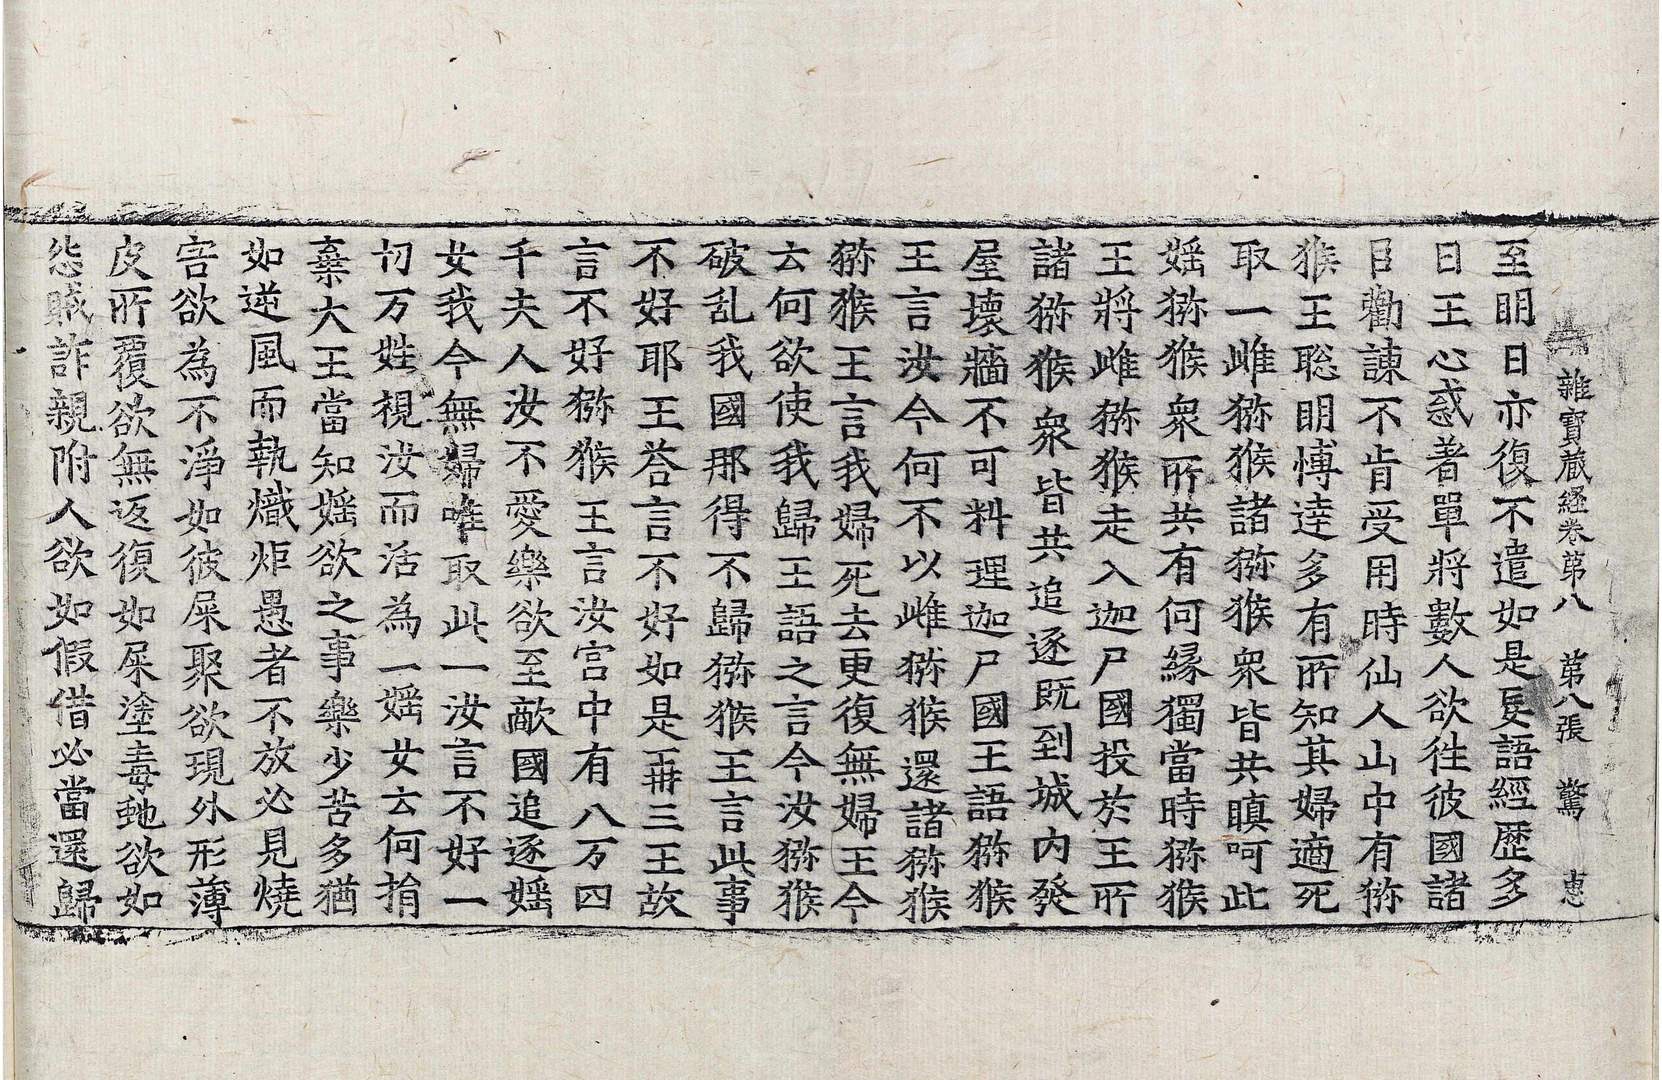 雜寶蔵経卷第八 第八張 驚 惠
至明日亦復不遣如是㪅語經歷多
日王心惑著單將數人欲徃彼國諸
臣勸諫不肯受用時仙人山中有猕
猴王聡明愽逹多有所知其婦適死
取一雌猕猴諸猕猴衆皆共瞋呵此
婬猕猴衆所共有何縁獨當時猕猴
王將雌猕猴走入迦尸國投於王所
諸猕猴衆皆共追逐既到城内發
屋壊牆不可料理迦尸國王語猕猴
王言汝今何不以雌猕猴還諸猕猴
猕猴王言我婦死去更復無婦王今
云何欲使我歸王語之言今汝猕猴
破乱我國那得不歸猕猴王言此事
不好耶王荅言不好如是再三王故
言不好猕猴王言汝宫中有八万四
千夫人汝不愛樂欲至敵國追逐婬
女我今無婦唯取此一汝言不好一
切万姓視汝而活為一婬女云何捐
棄大王當知婬欲之事樂少苦多猶
如逆風而執熾炬愚者不放必見燒
害欲為不淨如彼屎聚欲現外形薄
皮所覆欲無返復如屎塗毒虵欲如
怨賊詐親附人欲如假借必當還歸